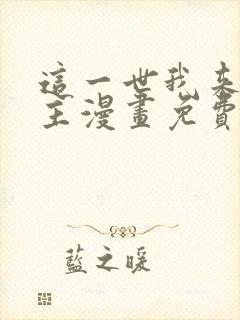 這一世我來
主漫畫免費
藍之暖